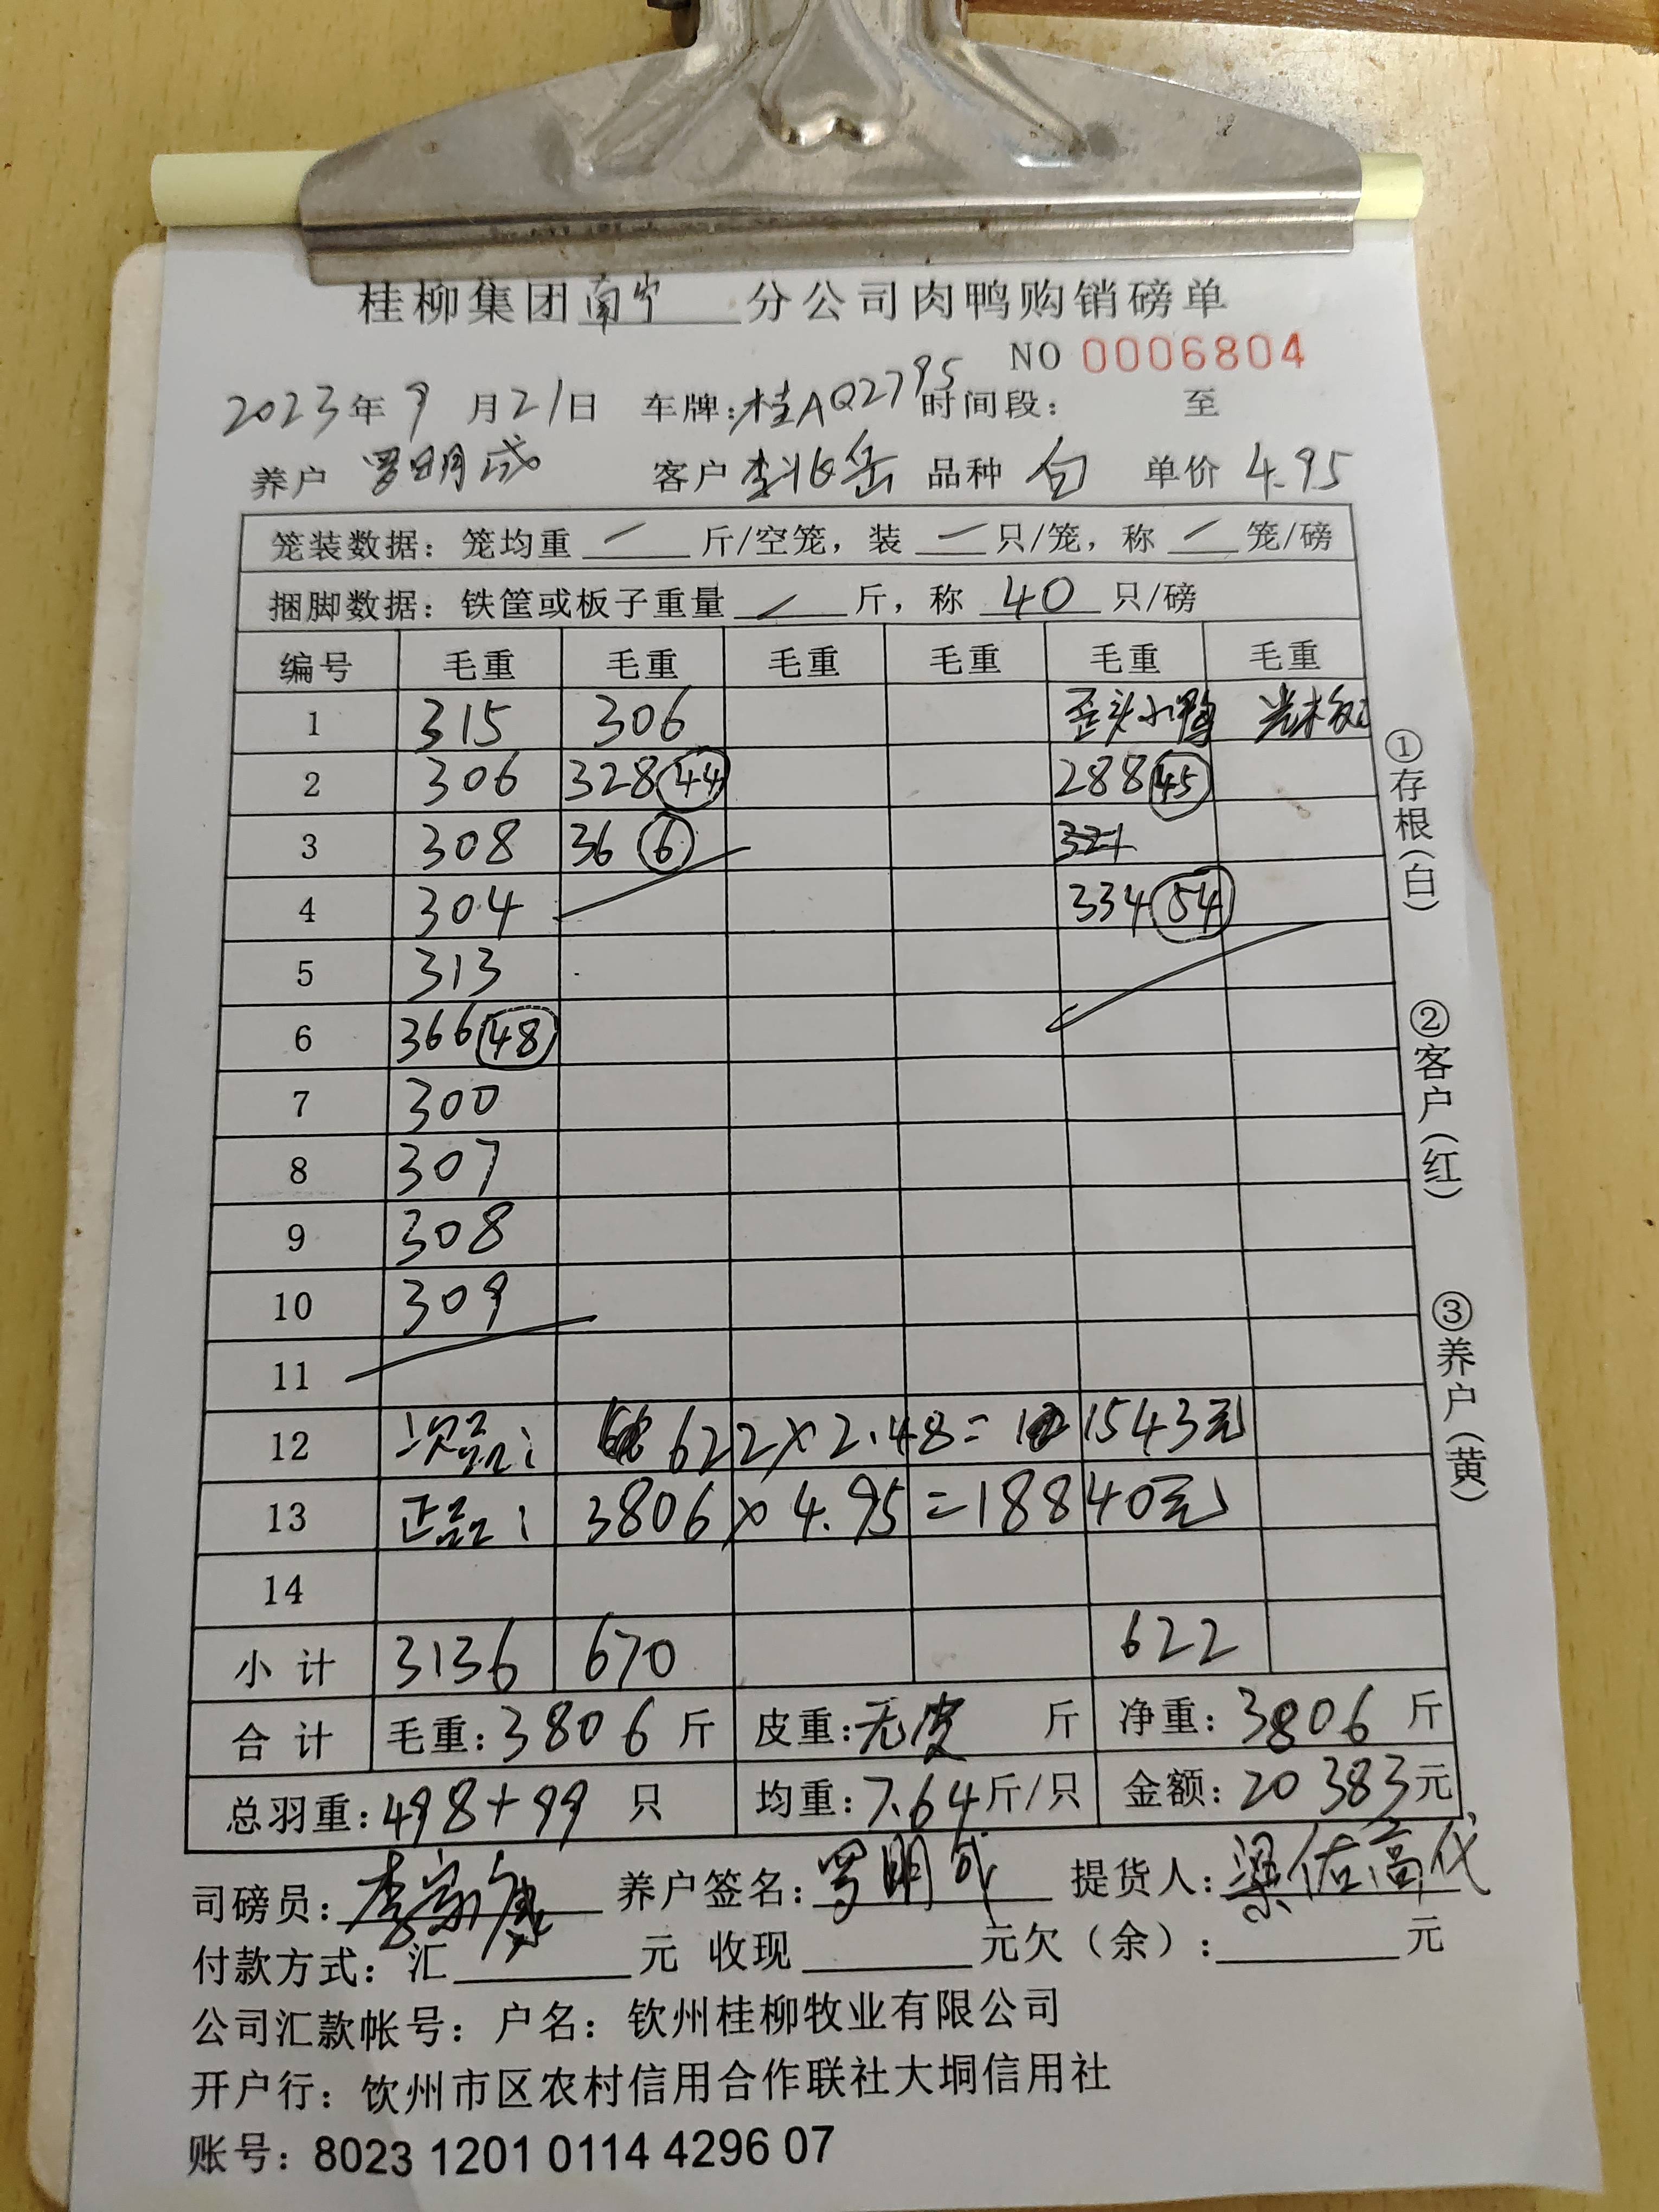 桂柳集团南宁分公司肉鸭购销磅单
NO 0006804
2023年9月21日 车牌:桂AQ2795 时间段: 至
养户 罗明成 客户 李兆岳 品种 白 单价 4.95
笼装数据: 笼均重 / 斤/空笼, 装 / 只/笼, 称 / 笼/磅
捆脚数据: 铁筐或板子重量 / 斤, 称 40 只/磅
编号 毛重 毛重 毛重 毛重 毛重 毛重
1 315 306 歪头小鸭
2 306 328 44 288 45
3 308 36 6 321
4 304 334 54
5 313
6 366 48
7 300
8 307
9 308
10 309
11
12 次品: 622×2.48= 1543元
13 正品: 3806×4.95=18840元
14
小计 3136 670 622
合计 毛重:3806斤 皮重:无皮 斤 净重:3806斤
总羽重:498+99 只 均重:7.64斤/只 金额:20383元
司磅员: 李家康 养户签名:罗明成 提货人:梁佑高代
付款方式: 汇 元 收现 元欠(余): 元
公司汇款帐号: 户名: 钦州桂柳牧业有限公司
开户行: 钦州市区农村信用合作联社大垌信用社
账号: 8023 1201 0114 4296 07
①存根(白)
②客户(红)
③养户(黄)